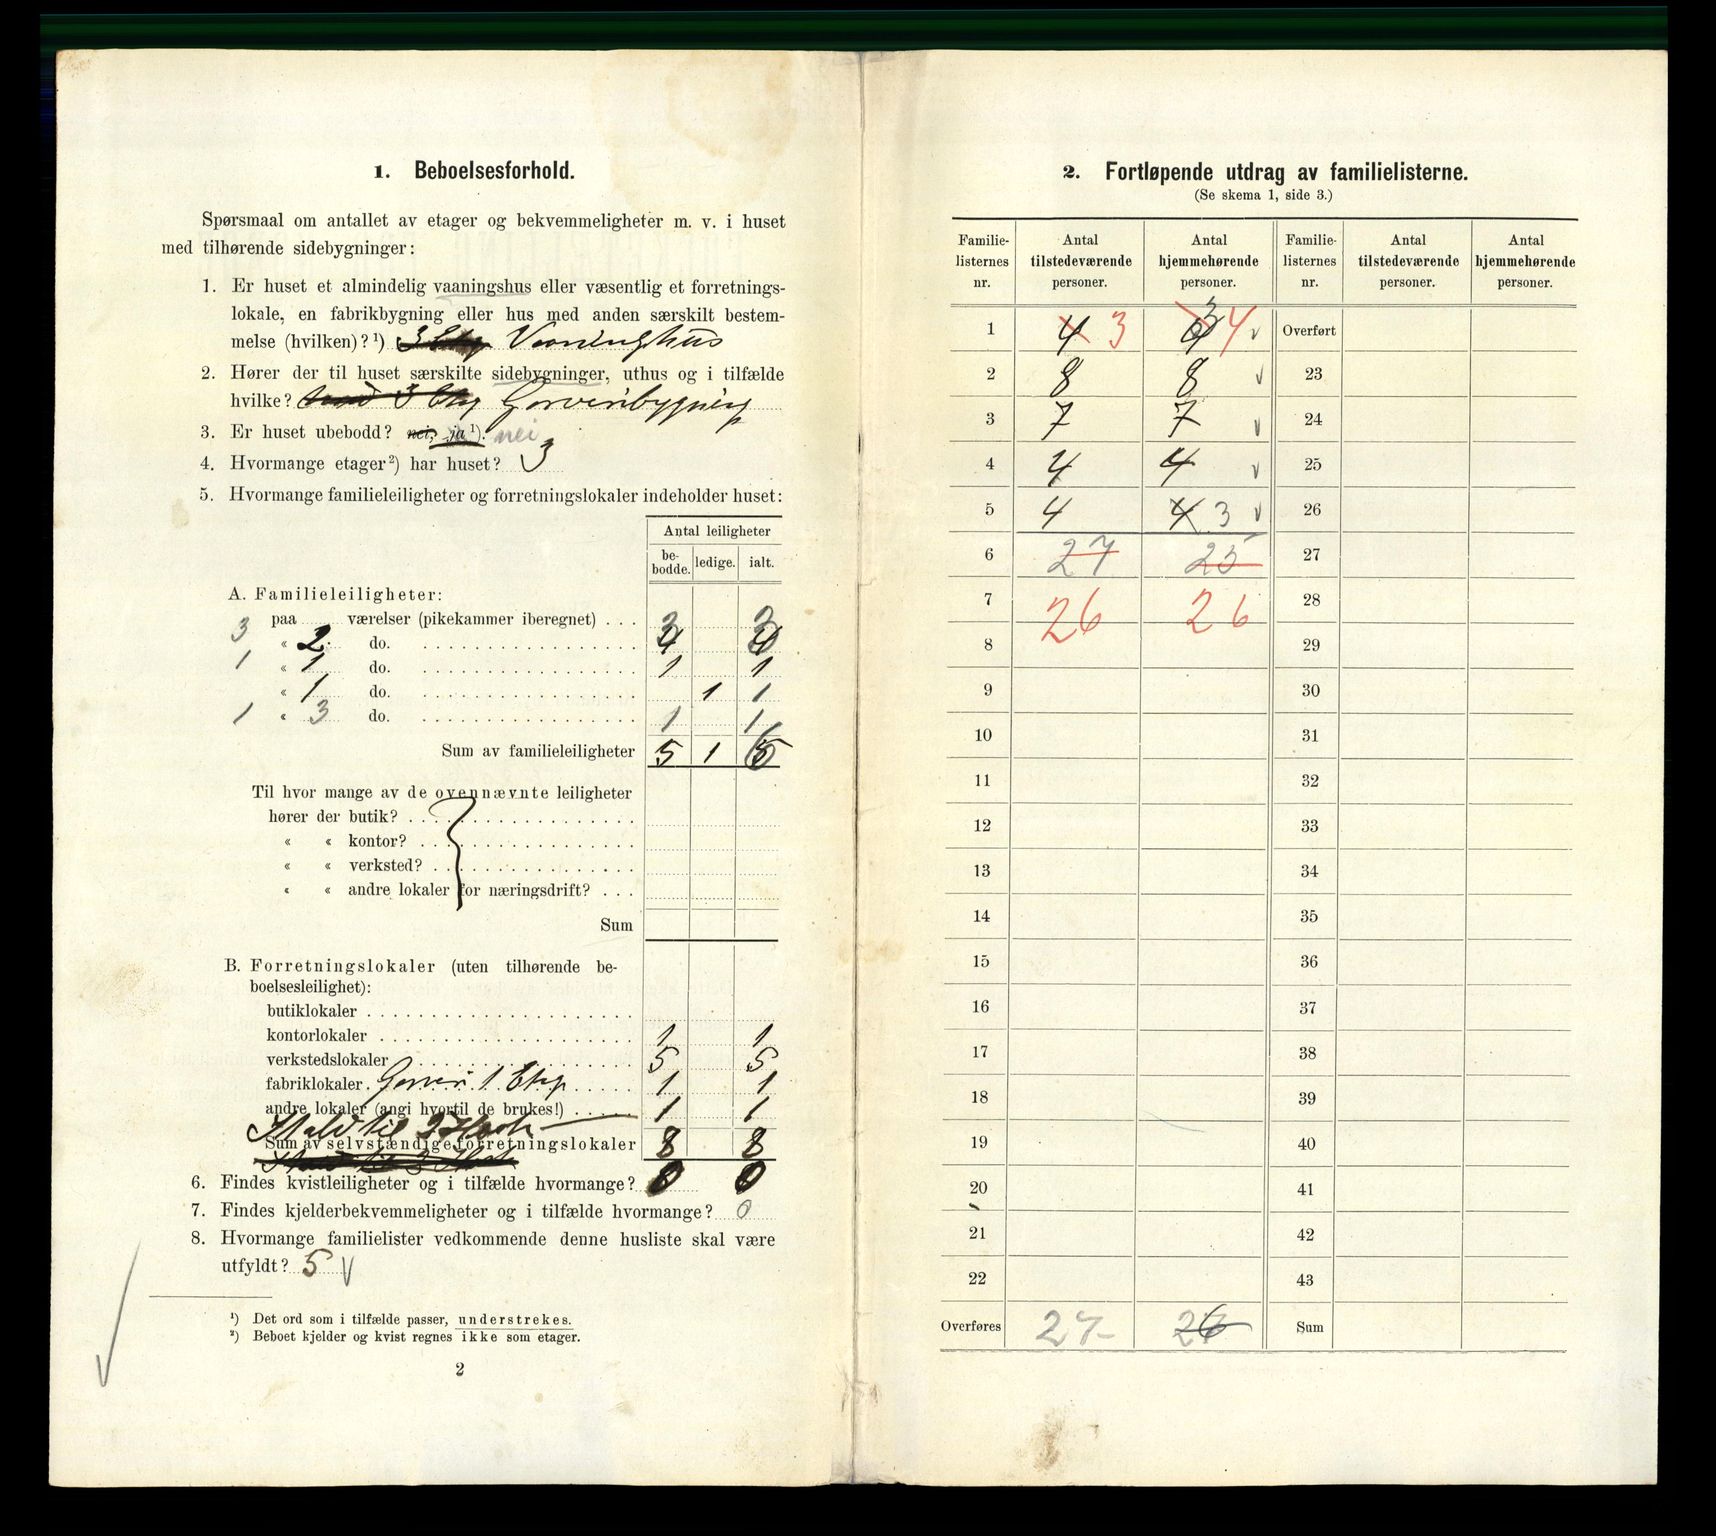 1. Beboelsesforhold.
Spørsmaal om antallet av etager og bekvemmeligheter m. v. i huset
med tilhørende sidebygninger:
1. Er huset et almindelig vaaningshus eller væsentlig et forretnings-
lokale, en fabrikbygning eller hus med anden særskilt bestem-
melse (hvilken)? ¹) 3 Etg Vaaningshus
2. Hører der til huset særskilte sidebygninger, uthus og i tilfælde
hvilke? 3 Etg Garveribygning
3. Er huset ubebodd? nei, ja ¹). nei
4. Hvormange etager ²) har huset? 3
5. Hvormange familieleiligheter og forretningslokaler indeholder huset:
Antal leiligheter
be-
bodde. ledige. ialt.
A. Familieleiligheter:
paa værelser (pikekammer iberegnet) . . .
3 « 2 do. 3 4 3 4
1 « 1 do. 1 1
« 1 do. 1 1
1 « 3 do. 1 1
Sum av familieleiligheter 5 1 6
Til hvor mange av de ovennævnte leiligheter
hører der butik?
« « kontor?
« « verksted?
« « andre lokaler for næringsdrift? . . .
Sum
B. Forretningslokaler (uten tilhørende be-
boelsesleilighet):
butiklokaler
kontorlokaler 1 1
verkstedslokaler 5 5
fabriklokaler. Garveri 1 Etg 1 1
andre lokaler (angi hvortil de brukes!) 1 1
Stald til 2 Heste
Sum av selvstændige forretningslokaler 8 8
Stald til 3 Heste
6. Findes kvistleiligheter og i tilfælde hvormange? 0 0
7. Findes kjelderbekvemmeligheter og i tilfælde hvormange? 0
8. Hvormange familielister vedkommende denne husliste skal være
utfyldt? 5 v
¹) Det ord som i tilfælde passer, understrekes.
²) Beboet kjelder og kvist regnes ikke som etager.
2
2. Fortløpende utdrag av familielisterne.
(Se skema 1, side 3.)
Familie-
listernes
nr. Antal
tilstedeværende
personer. Antal
hjemmehørende
personer. Familie-
listernes
nr. Antal
tilstedeværende
personer. Antal
hjemmehørende
personer.
1 4 3 3 4 v Overført
2 8 8 v 23
3 7 7 v 24
4 4 4 v 25
5 4 4 3 v 26
6 27 25 27
7 26 26 28
8 29
9 30
10 31
11 32
12 33
13 34
14 35
15 36
16 37
17 38
18 39
19 40
20 41
21 42
22 43
Overføres 27 26 Sum